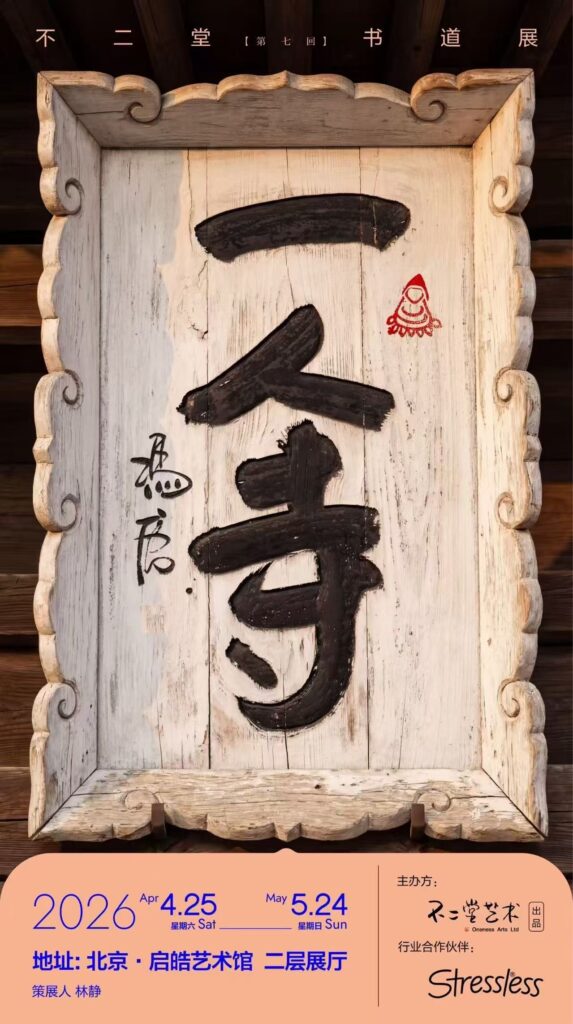 不二堂【第七回】书道展
一人寺
馮唐
2026 Apr 4.25 星期六 Sat May 5.24 星期日 Sun
地址: 北京·启皓艺术馆 二层展厅
策展人 林静
主办方:
不二堂艺术 出品
Oneness Arts Ltd
行业合作伙伴:
Stressless